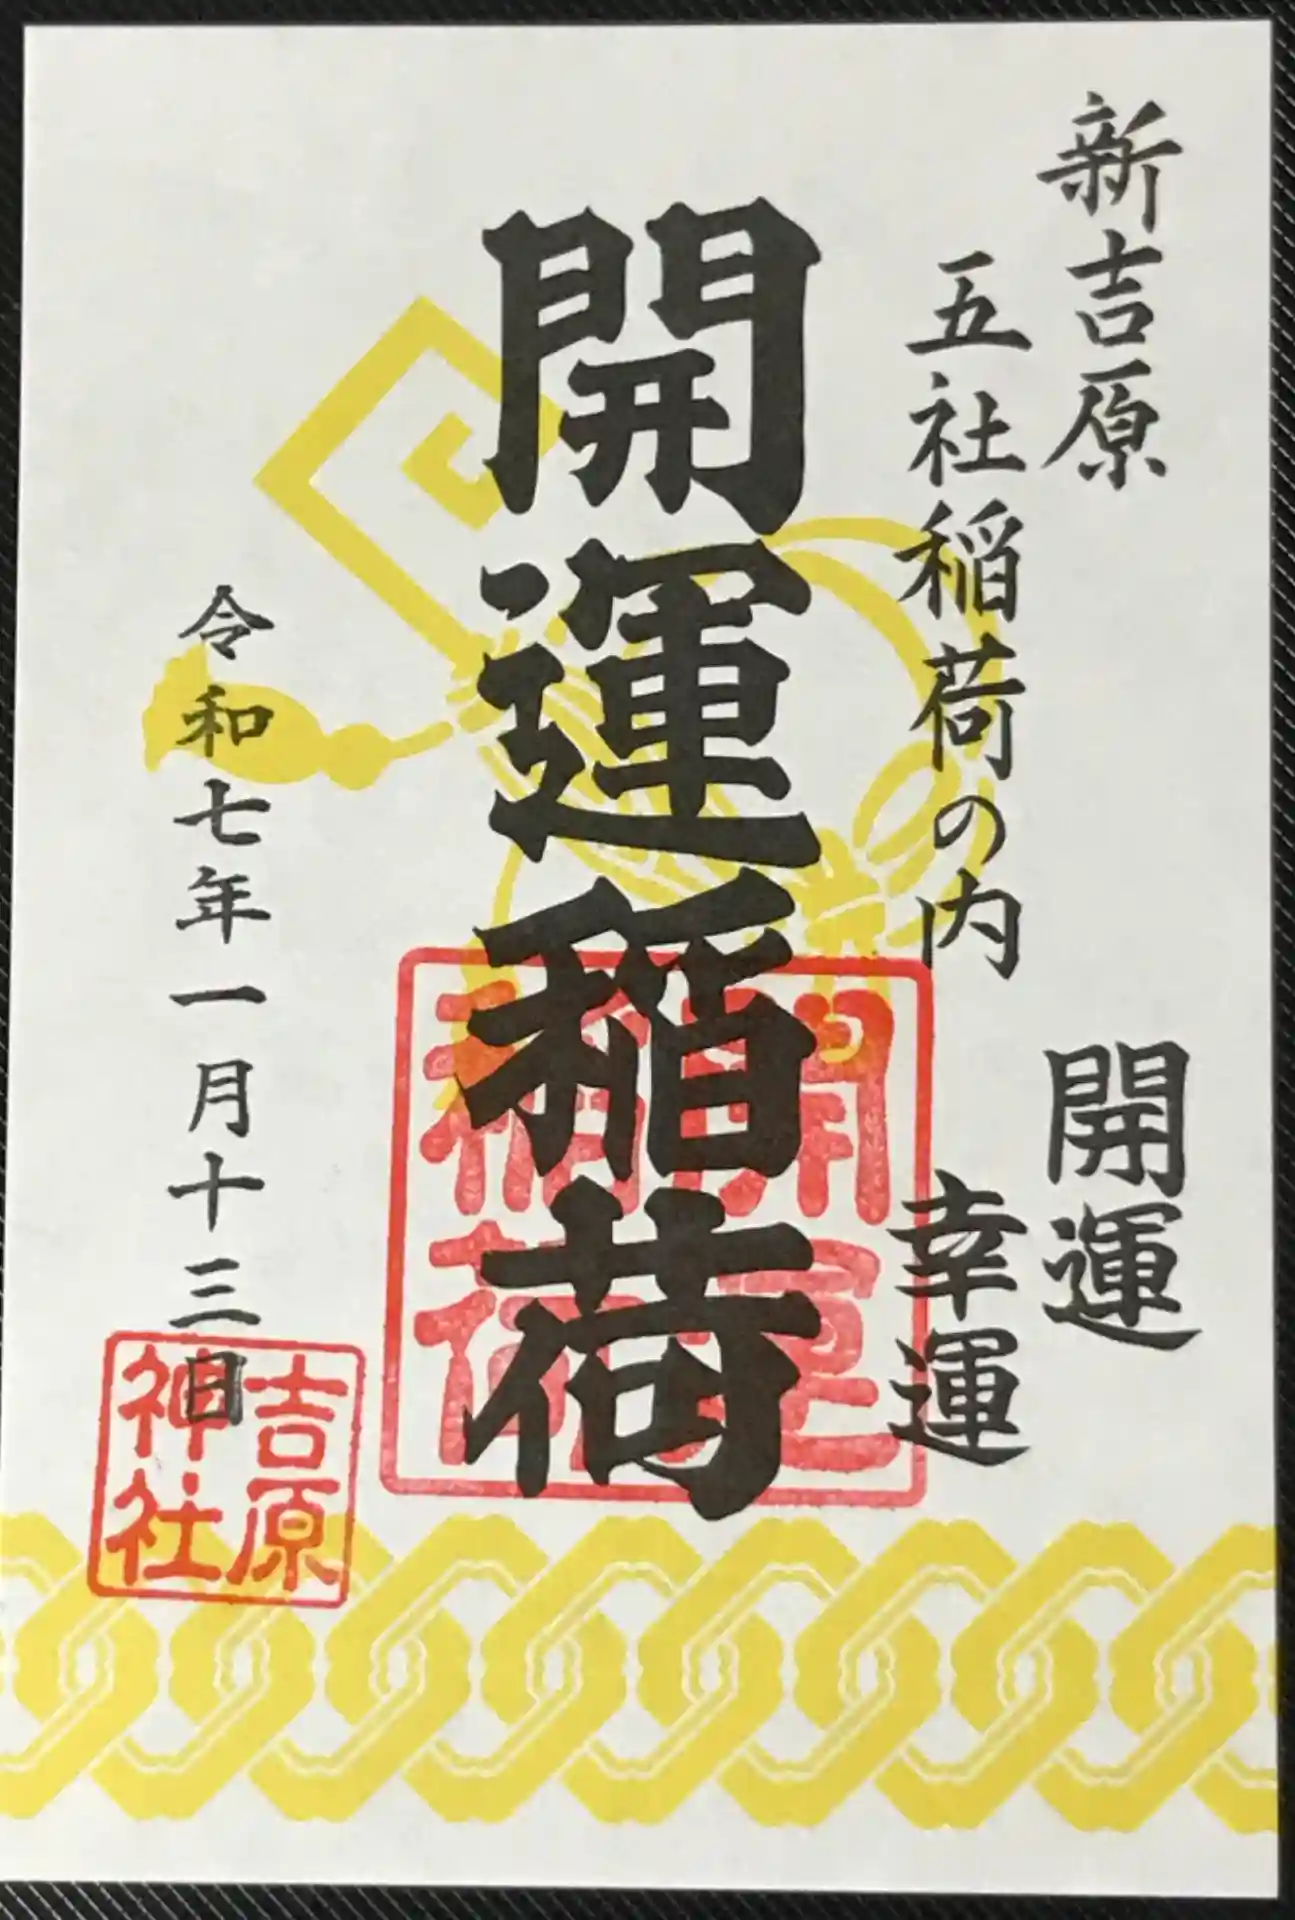 新吉原
五社稲荷の内
開運
幸運
開運稲荷
開運
稲荷
令和七年一月十三日
吉原
神社